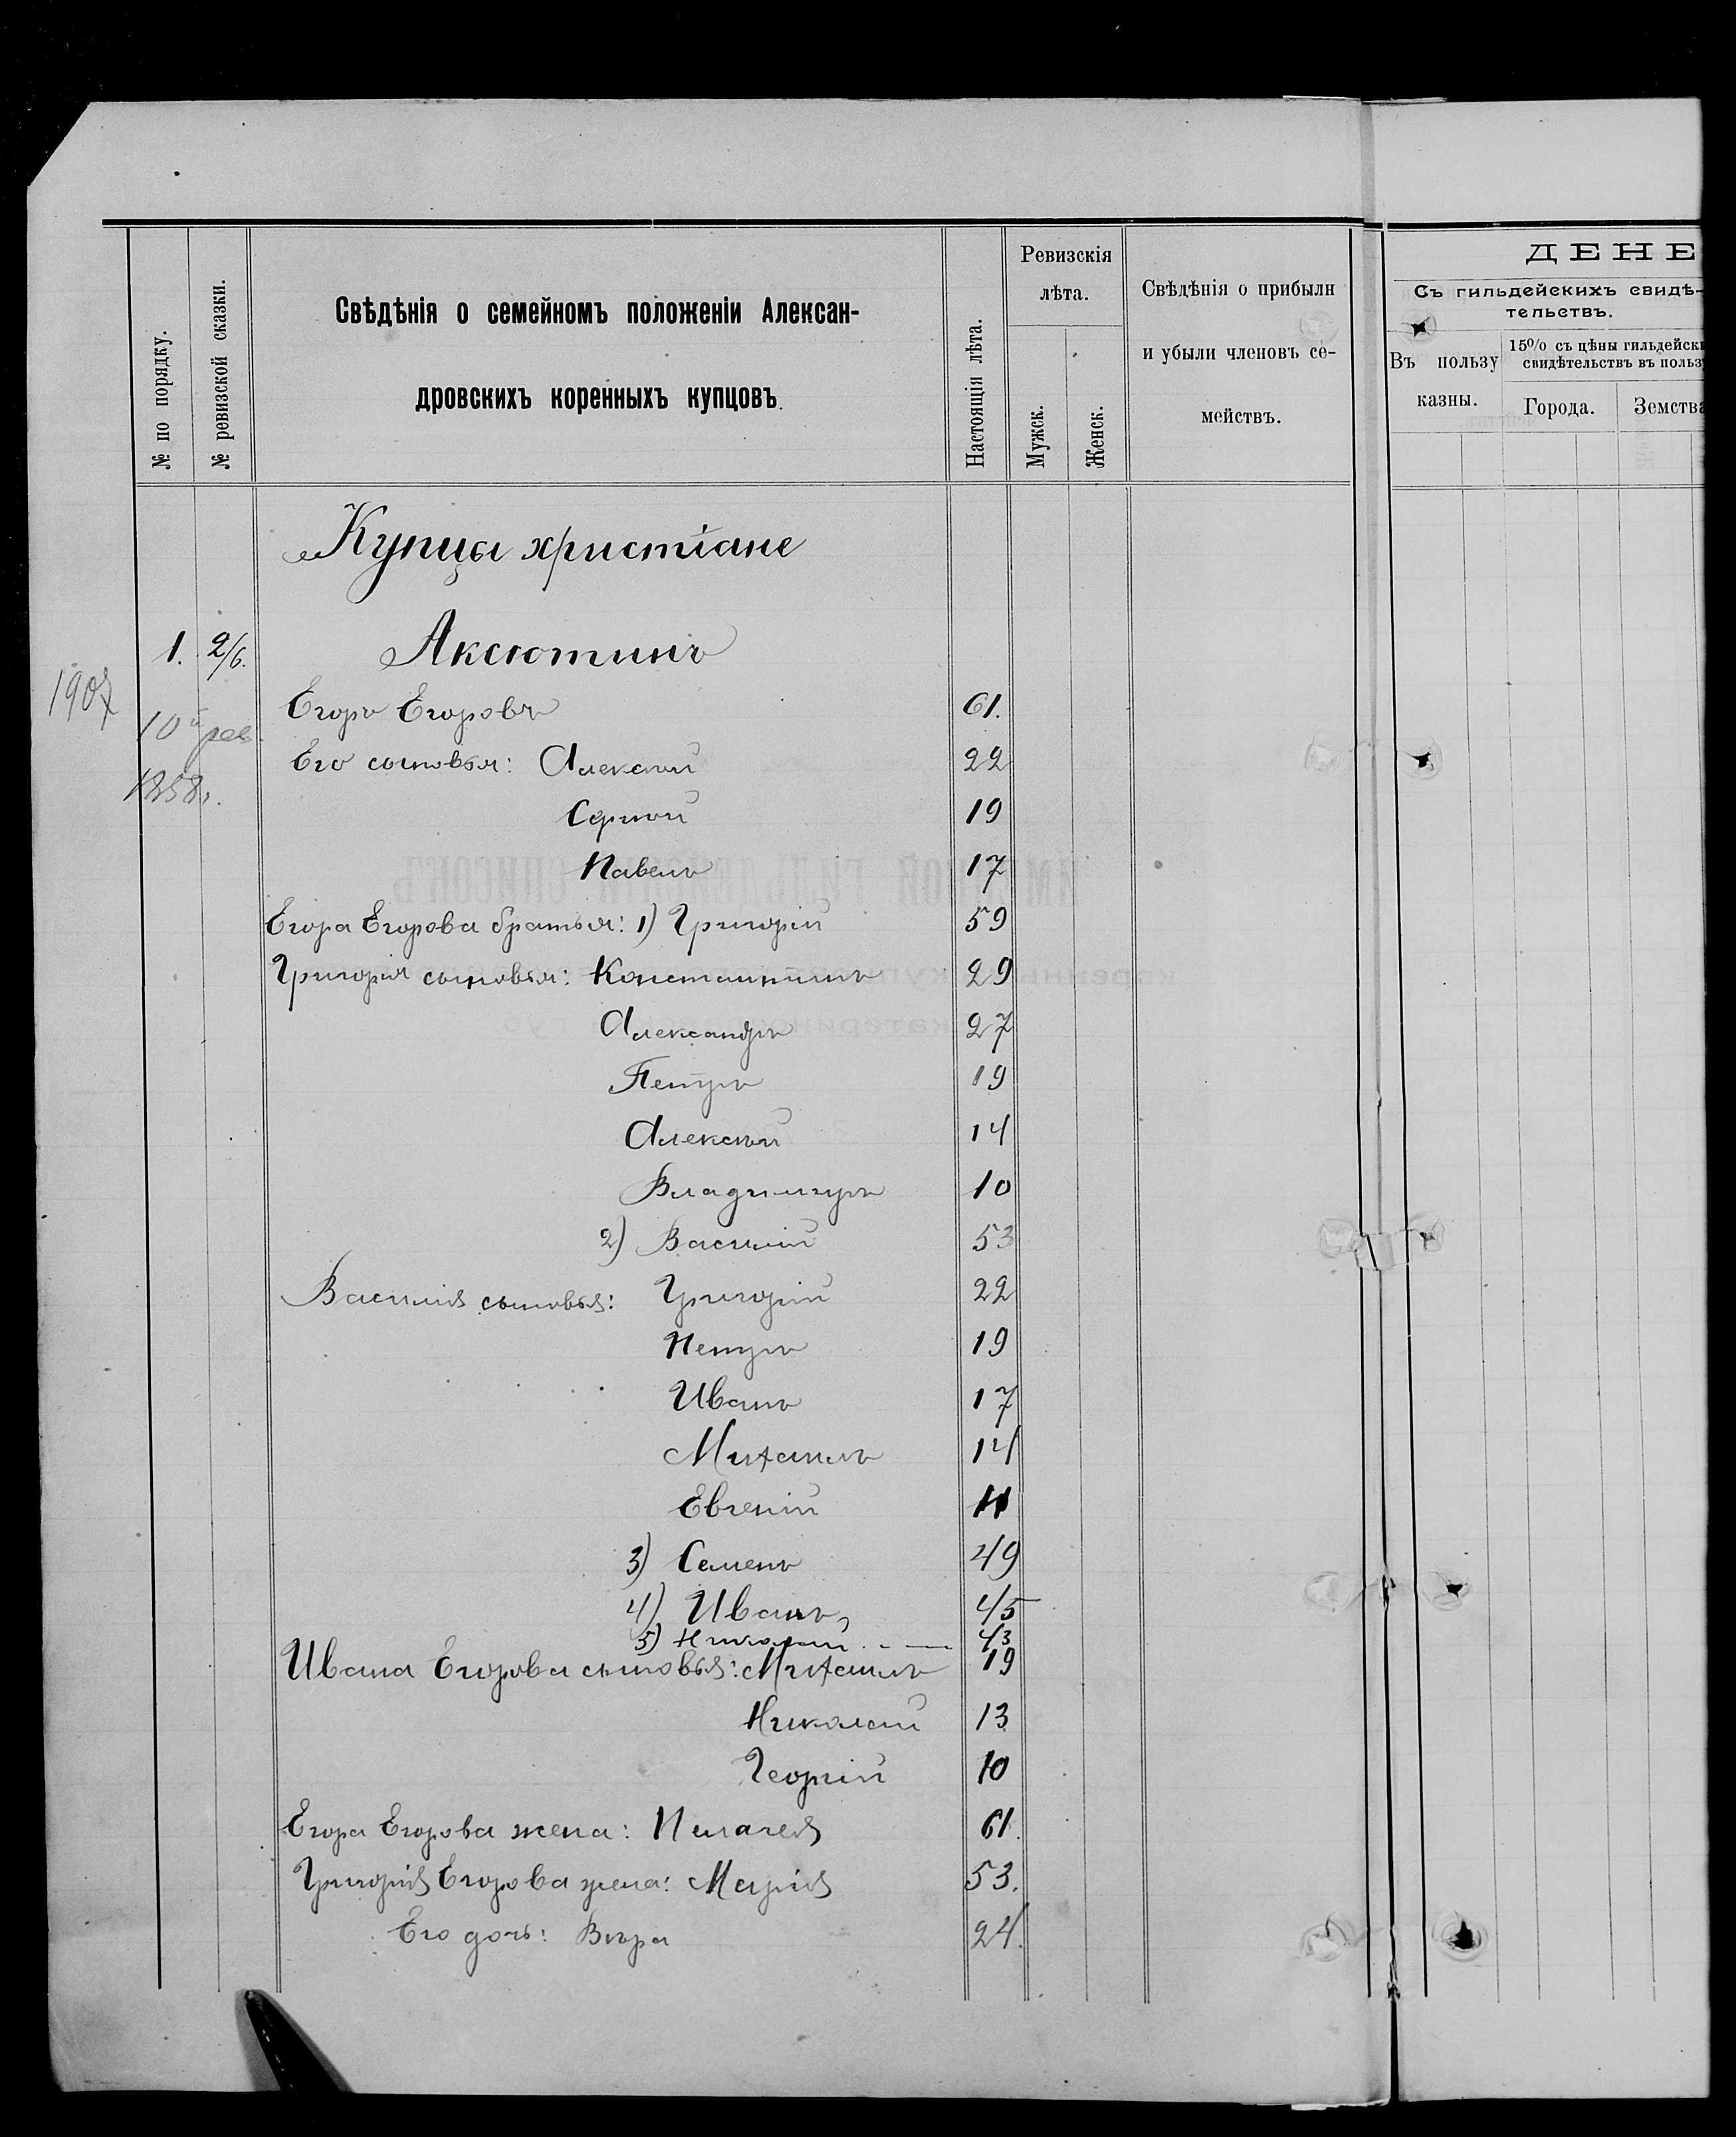 № по порядку.
№ ревизской сказки.
Свѣдѣнія о семейномъ положеніи Алексан-
дровскихъ коренныхъ купцовъ.
Настоящія лѣта.
Ревизскія
лѣта.
Мужск.
Женск.
Свѣдѣнія о прибыли
и убыли членовъ се-
мействъ.
ДЕНЕ
Съ гильдейскихъ свидѣ-
тельствъ.
Въ пользу
казны.
15% съ цѣны гильдейски
свидѣтельствъ въ польз
Города.
Земства
Купцы христіане
1. 2/6. Аксютинъ
1907
10й рев.
1858г.
Егоръ Егоровъ 61.
Его сыновья: Алексѣй 22
Сергѣй 19
Павелъ 17
Егора Егорова братья: 1) Григорій 59
Григорія сыновья: Константинъ 29
Александръ 27
Петръ 19
Алексѣй 14
Владимиръ 10
2) Василій 53
Василія сыновья: Григорій 22
Петръ 19
Иванъ 17
Михаилъ 14
Евгеній 11
3) Семенъ 49
4) Иванъ 45
5) Николай 43
Ивана Егорова сыновья: Михаилъ 19
Николай 13
Георгій 10
Егора Егорова жена: Пелагея 61.
Григорія Егорова жена: Марія 53.
Его дочь: Вѣра 24.